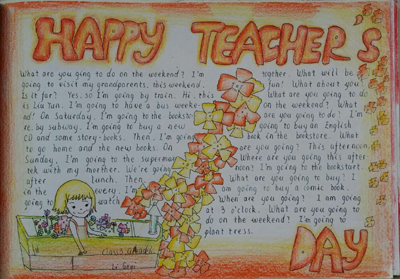 HAPPY TEACHER'S
What are you ging to do on the weekend? I'm
going to visit my grandparents, this weekend.
Is it far? Yes, so I'm going by train. Hi, this
is Liu Yun. I'm going to have a bus weeke-
nd! On Saturday, I'm going to the booksto-
re. by subway. I'm going to buy a new
CD and some story-books. Then, I'm going
to go home and the new books. On
Sunday, I'm going to the supermar-
ket with my mother. We're going
after lunch. Then
in the every, I'm
going to watch
together. What will be
fun! What about you?
What are you going to do
on the weekend? What
are you going to do? I'm
going to buy an English
book in the bookstore. What
are you going? This afternoon.
Where are you going this after
noon? I'm going to the bookstore.
What are you going to buy? I
am going to buy a comic book.
When are you going? I am going
at 3 o'clock. What are you going to
do on the weekend? I'm going to
plant trees.
DAY